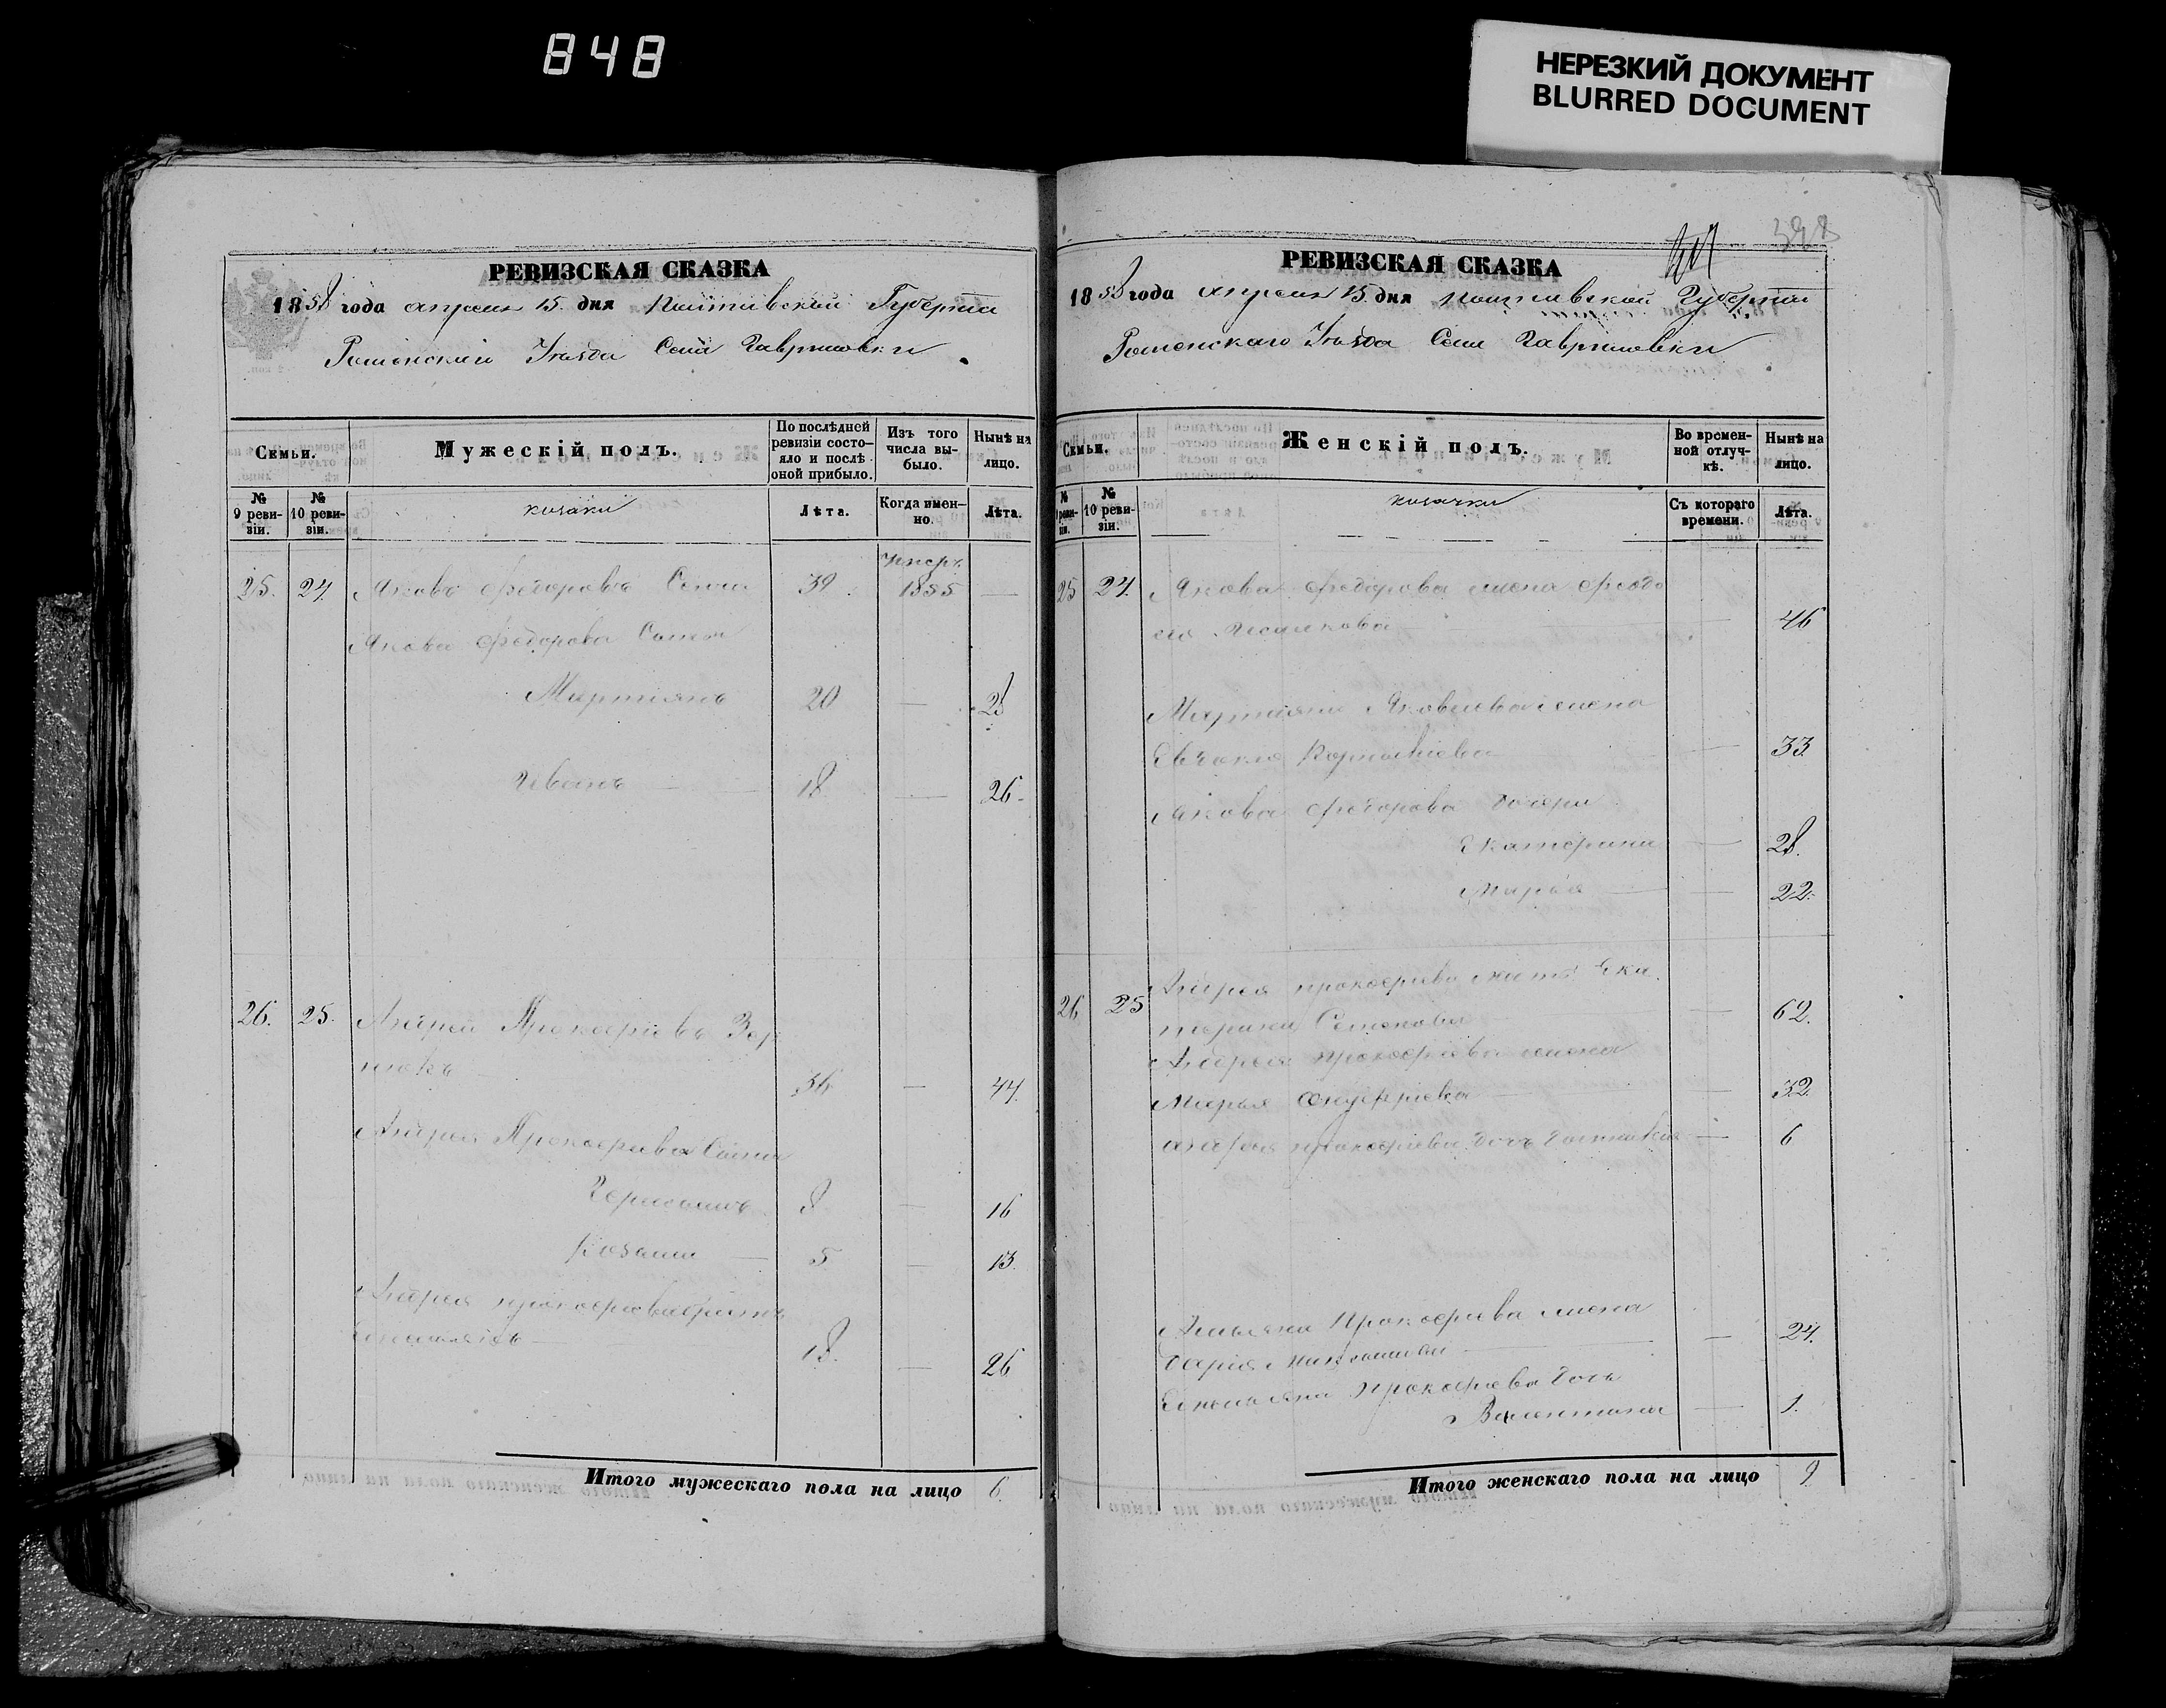 848
НЕРЕЗКИЙ ДОКУМЕНТ
BLURRED DOCUMENT
РЕВИЗСКАЯ СКАЗКА
1858 года апреля 15. дня Полтавской Губерніи
Роменскаго Уезда Села Гавриловки
Семьи.
Мужескій полъ.
По послѣдней ревизіи состояло и послѣ оной прибыло.
Изъ того числа выбыло.
Нынѣ на лицо.
№ 9 ревизіи.
№ 10 ревизіи.
козаки
Лѣта.
Когда именно.
Лѣта.
25. 24. Яковъ Федоровъ 39. умеръ 1855 —
Якова Федорова
Мартіянъ 20 — 28
Иванъ — 18 — 26.
26. 25. Андрей Прокофіевъ
36 — 44.
Андрея Прокофіева Сыны
Герасимъ 8 — 16
Козьма — 5 — 13.
Андрея Прокофіева братъ
Емельянъ — 18. — 26
Итого мужескаго пола на лицо 6.
398
РЕВИЗСКАЯ СКАЗКА
1858 года апреля 15. дня Полтавской Губерніи
Роменскаго Уезда Села Гавриловки
Семьи.
Женскій полъ.
Во временной отлучкѣ.
Нынѣ на лицо.
№ 9 ревизіи.
№ 10 ревизіи.
козачки
Съ котораго времени.
Лѣта.
25 24. Якова Федорова жена
— 46
Мартіяна Яковлева жена
Евдокия — 33
Якова Федорова дочери
Екатерина — 28.
Марья — 22.
26 25 Андрея Прокофіева мать Ека
терина Семенова — 62.
Андрея Прокофіева жена
Марья Онуфріева — 32
Андрея Прокофіева дочь — 6
Емельяна Прокофіева жена
Дарія — 24.
Емельяна Прокофіева дочь
Валентина — 1.
Итого женскаго пола на лицо 9